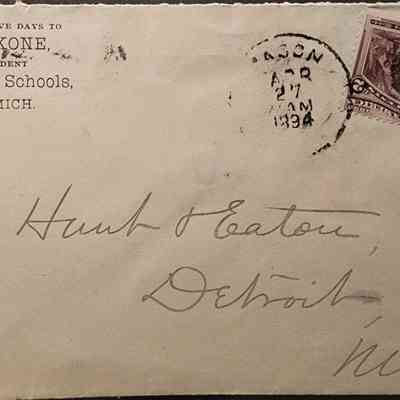 VE DAYS TO
KONE,
DENT
Schools,
MICH.
ASON
APR
27
AM
1894
Hunt & Eaton,
Detroit,